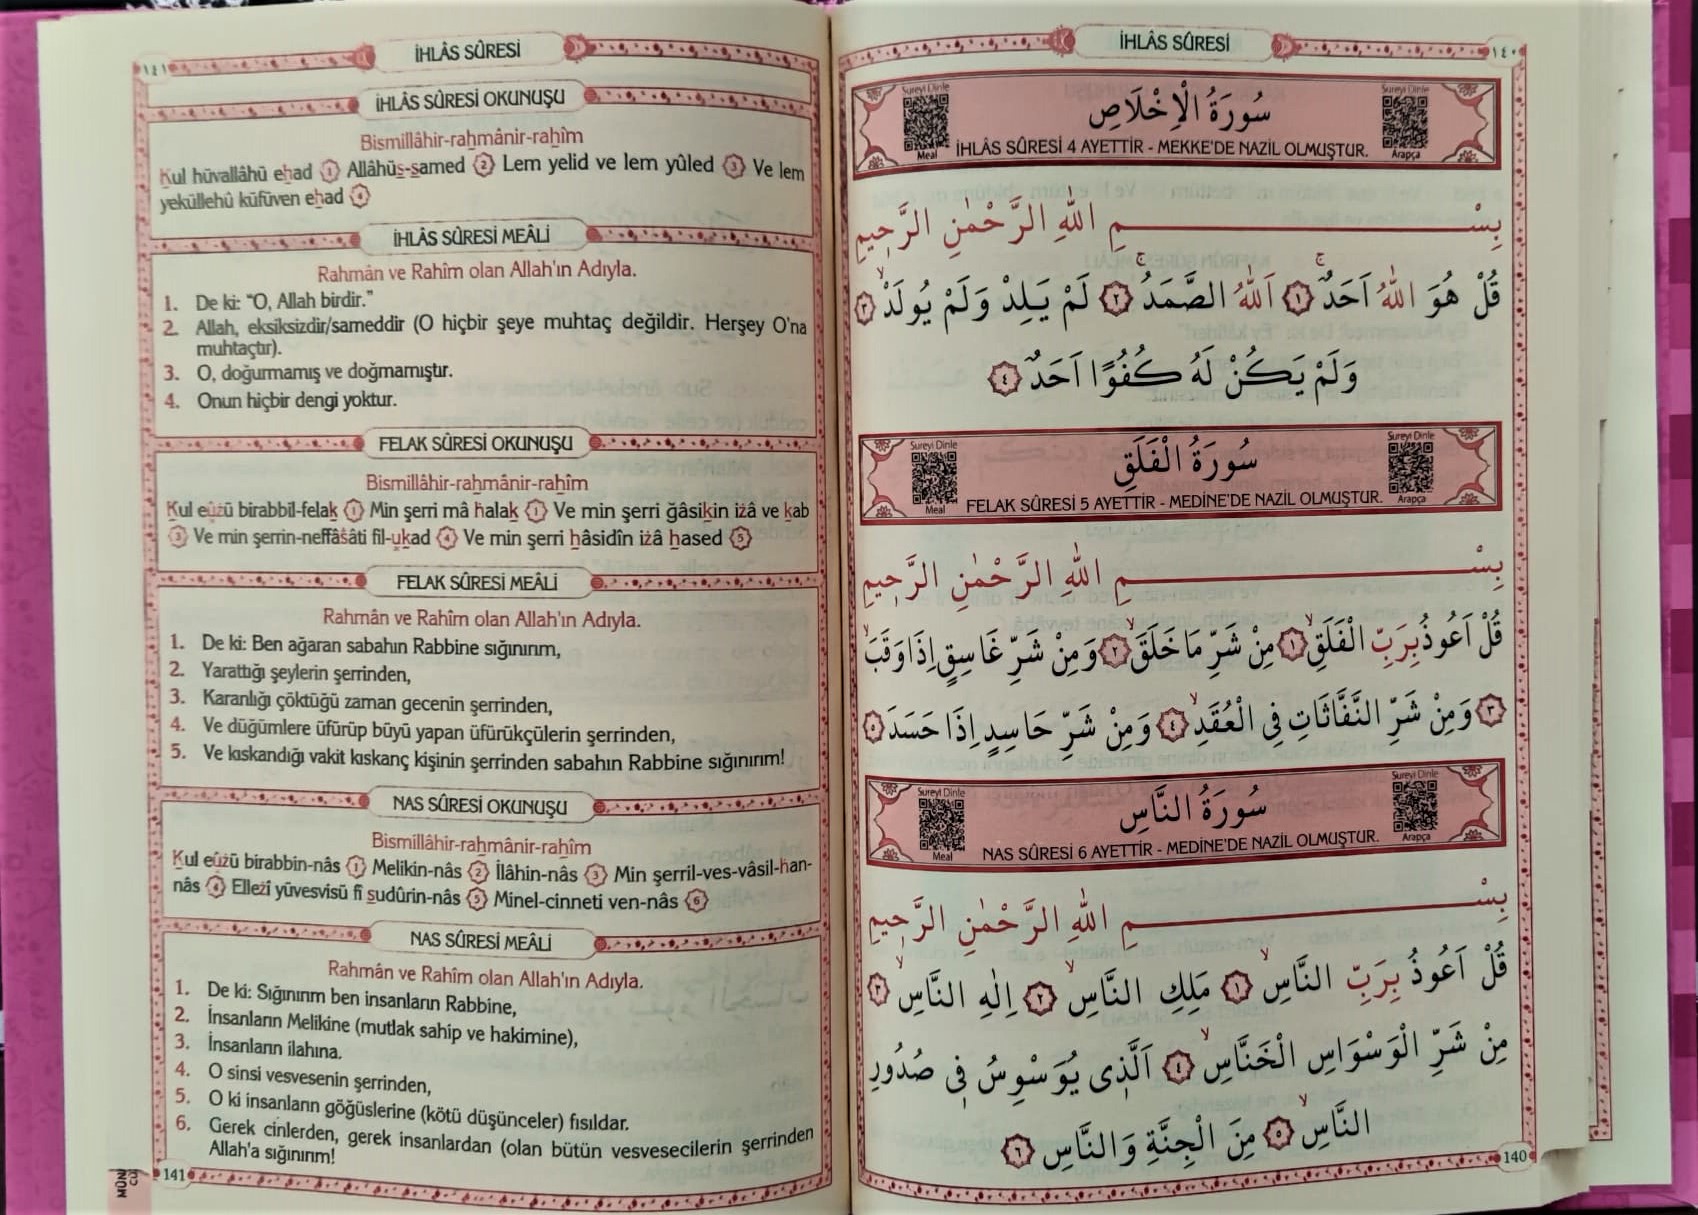 İHLÂS SÛRESİ
١٤٠
Sureyi Dinle
Meal
سُورَةُ الْاِخْلَاصِ
Sureyi Dinle
Arapça
İHLÂS SÛRESİ 4 AYETTİR - MEKKE'DE NAZİL OLMUŞTUR.
بِسْمِ اللهِ الرَّحْمٰنِ الرَّح۪يمِ
قُلْ هُوَ اللهُ اَحَدٌۚ ﴿١﴾ اَللهُ الصَّمَدُۚ ﴿٢﴾ لَمْ يَلِدْ وَلَمْ يُولَدْۙ ﴿٣﴾
وَلَمْ يَكُنْ لَهُ كُفُوًا اَحَدٌ ﴿٤﴾
Sureyi Dinle
Meal
سُورَةُ الْفَلَقِ
Sureyi Dinle
Arapça
FELAK SÛRESİ 5 AYETTİR - MEDİNE'DE NAZİL OLMUŞTUR.
بِسْمِ اللهِ الرَّحْمٰنِ الرَّح۪يمِ
قُلْ اَعُوذُ بِرَبِّ الْفَلَقِۙ ﴿١﴾ مِنْ شَرِّ مَا خَلَقَۙ ﴿٢﴾ وَمِنْ شَرِّ غَاسِقٍ اِذَا وَقَبَۙ
﴿٣﴾ وَمِنْ شَرِّ النَّفَّاثَاتِ فِي الْعُقَدِۙ ﴿٤﴾ وَمِنْ شَرِّ حَاسِدٍ اِذَا حَسَدَ ﴿٥﴾
Sureyi Dinle
Meal
سُورَةُ النَّاسِ
Sureyi Dinle
Arapça
NAS SÛRESİ 6 AYETTİR - MEDİNE'DE NAZİL OLMUŞTUR.
بِسْمِ اللهِ الرَّحْمٰنِ الرَّح۪يمِ
قُلْ اَعُوذُ بِرَبِّ النَّاسِۙ ﴿١﴾ مَلِكِ النَّاسِۙ ﴿٢﴾ اِلٰهِ النَّاسِۙ ﴿٣﴾
مِنْ شَرِّ الْوَسْوَاسِ الْخَنَّاسِۙ ﴿٤﴾ اَلَّذ۪ى يُوَسْوِسُ ف۪ى صُدُورِ
النَّاسِۙ ﴿٥﴾ مِنَ الْجِنَّةِ وَالنَّاسِ ﴿٦﴾
140
١٤١
İHLÂS SÛRESİ
İHLÂS SÛRESİ OKUNUŞU
Bismillâhir-raḥmânir-raḥîm
Ḳul hüvallâhü eḥad (1) Allâhüs-samed (2) Lem yelid ve lem yûled (3) Ve lem
yeküllehû küfüven eḥad (4)
İHLÂS SÛRESİ MEÂLİ
Rahmân ve Rahîm olan Allah'ın Adıyla.
1. De ki: "O, Allah birdir."
2. Allah, eksiksizdir/sameddir (O hiçbir şeye muhtaç değildir. Herşey O'na
muhtaçtır).
3. O, doğurmamış ve doğmamıştır.
4. Onun hiçbir dengi yoktur.
FELAK SÛRESİ OKUNUŞU
Bismillâhir-raḥmânir-raḥîm
Ḳul eûẕü birabbil-felaḳ (1) Min şerri mâ ḣalaḳ (1) Ve min şerri ğâsiḳin iżâ ve ḳab
(3) Ve min şerrin-neffâṡâti fil-uḳad (4) Ve min şerri ḥâsidîn iżâ ḥased (5)
FELAK SÛRESİ MEÂLİ
Rahmân ve Rahîm olan Allah'ın Adıyla.
1. De ki: Ben ağaran sabahın Rabbine sığınırım,
2. Yarattığı şeylerin şerrinden,
3. Karanlığı çöktüğü zaman gecenin şerrinden,
4. Ve düğümlere üfürüp büyü yapan üfürükçülerin şerrinden,
5. Ve kıskandığı vakit kıskanç kişinin şerrinden sabahın Rabbine sığınırım!
NAS SÛRESİ OKUNUŞU
Bismillâhir-raḥmânir-raḥîm
Ḳul eûẕü birabbin-nâs (1) Melikin-nâs (2) İlâhin-nâs (3) Min şerril-ves-vâsil-ḣan-
nâs (4) Elleżî yüvesvisü fî ṣudûrin-nâs (5) Minel-cinneti ven-nâs (6)
NAS SÛRESİ MEÂLİ
Rahmân ve Rahîm olan Allah'ın Adıyla.
1. De ki: Sığınırım ben insanların Rabbine,
2. İnsanların Melikine (mutlak sahip ve hakimine),
3. İnsanların ilahına.
4. O sinsi vesvesenin şerrinden,
5. O ki insanların göğüslerine (kötü düşünceler) fısıldar.
6. Gerek cinlerden, gerek insanlardan (olan bütün vesvesecilerin şerrinden
Allah'a sığınırım!
141